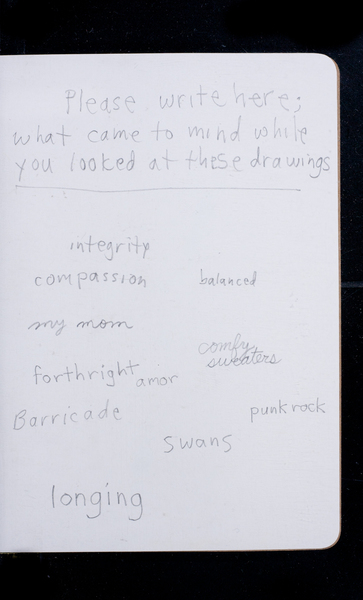 Please write here;
what came to mind while
you looked at these drawings
integrity
compassion
balanced
my mom
comfy
sweaters
forthright
amor
Barricade
punk rock
swans
longing